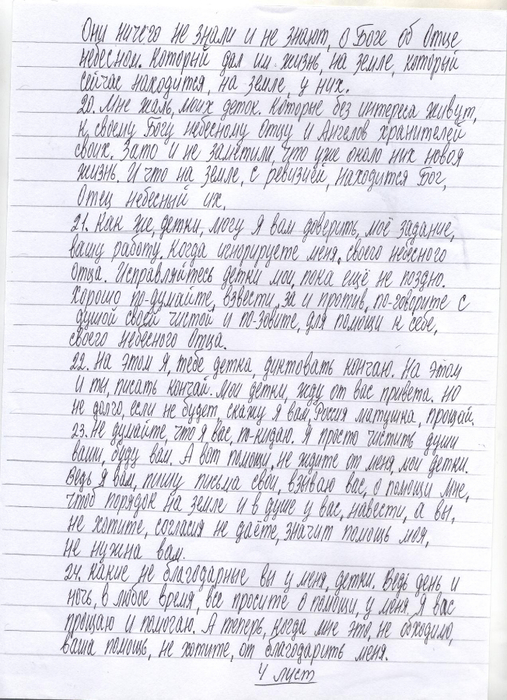 Они ничего не знали и не знают, о Боге об Отце
небесном. Который дал им жизнь, на земле, который
сейчас находится, на земле, у них.
20. Мне жаль, моих деток. Которые без интереса живут,
к своему Богу небесному Отцу и Ангелов хранителей
своих. Зато и не заметили, что уже около них новая
жизнь. И что на земле, с ревизией, находится Бог,
Отец небесный их.
21. Как же, детки, могу Я вам доверить, моё задание,
вашу работу. Когда игнорируете меня, своего небесного
Отца. Исправляйтесь детки мои, пока ещё не поздно.
Хорошо по-думайте, взвести, за и против, по-говорите с
душой своей чистой и по-зовите, для помощи к себе,
своего небесного Отца.
22. На этом Я, тебе детка, диктовать кончаю. На этом
и ты, писать кончай. Мои детки, жду от вас привета. Но
не долго, если не будет, скажу Я вам, Россия матушка, прощай.
23. Не думайте, что Я вас, по-кидаю. Я просто чистить души
ваши, буду вам. А вот помощи, не ждите от меня, мои детки.
Ведь Я вам, пишу письма свои, взываю вас, о помощи мне,
чтоб порядок на земле и в душе у вас, навести, а вы,
не хотите, согласия не даёте, значит помощь моя,
не нужна вам.
24. Какие не благодарные вы у меня, детки. Ведь день и
ночь, в любое время, все просите о помощи, у меня. Я вас
прощаю и помогаю. А теперь, когда мне это, не обходимо,
ваша помощь, не хотите, от благодарить меня.
4 лист